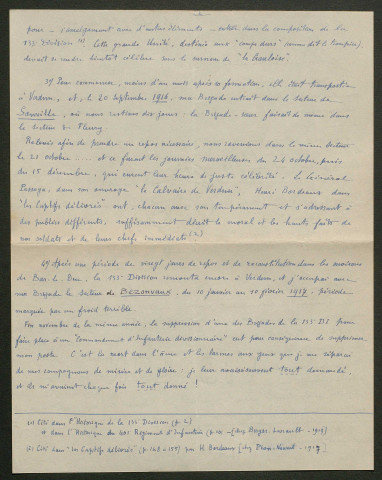 pour - s'amalgamant avec d'autres éléments - entrer dans la composition de la
133e Division (1). Cette grande Unité, destinée aux "coups durs"
devait se rendre bientôt célèbre sous le surnom de "la Gauloise".
3/ Pour commencer, moins d'un mois après sa formation, elle était transportée
à Verdun, et, le 20 septembre 1916, ma Brigade entrait dans le secteur de
Souville, où nous restions dix jours; la Brigade faisait de même dans
le secteur de Fleury.
Relevés afin de prendre un repos nécessaire, nous revenions dans le même secteur
le 23 octobre .... et ce furent les journées merveilleuses du 24 octobre, puis
du 15 décembre, qui eurent leur heure de juste célébrité. Le Général
Passaga, dans son ouvrage "le Calvaire de Verdun", Henri Bordeaux dans
"les Captifs délivrés" ont, chacun avec son tempérament et s'adressant à
des publics différents, suffisamment décrit le moral et les hauts faits de
nos soldats et de leurs chefs immédiats (2)
4/ Après une période de vingt jours de repos et de reconstitution dans les environs
de Bar-le-Duc, la 133e Division remonta encore à Verdun, et j'occupai avec
ma Brigade le secteur de BEZONVAUX, du 10 janvier au 10 février 1917, période
marquée par un froid terrible.
En novembre de la même année, la suppression d'une des Brigades de la 133e DI pour
faire place à un "Commandement d'Infanterie divisionnaire" eut pour conséquence de supprimer
mon poste. C'est la mort dans l'âme et les larmes aux yeux que je me séparai
de mes compagnons de misère et de gloire; je leur avais souvent tout demandé,
et ils m'avaient chaque fois tout donné!
(1) Cité dans l'Historique de la 133e Division (p. 2)
" dans l'Historique du 401e Régiment d'Infanterie (p. 10 - [chez Berger-Levrault - 1919)
(2) Cité dans "les Captifs délivrés" par H. Bordeaux [chez Plon-Nourrit - 1917